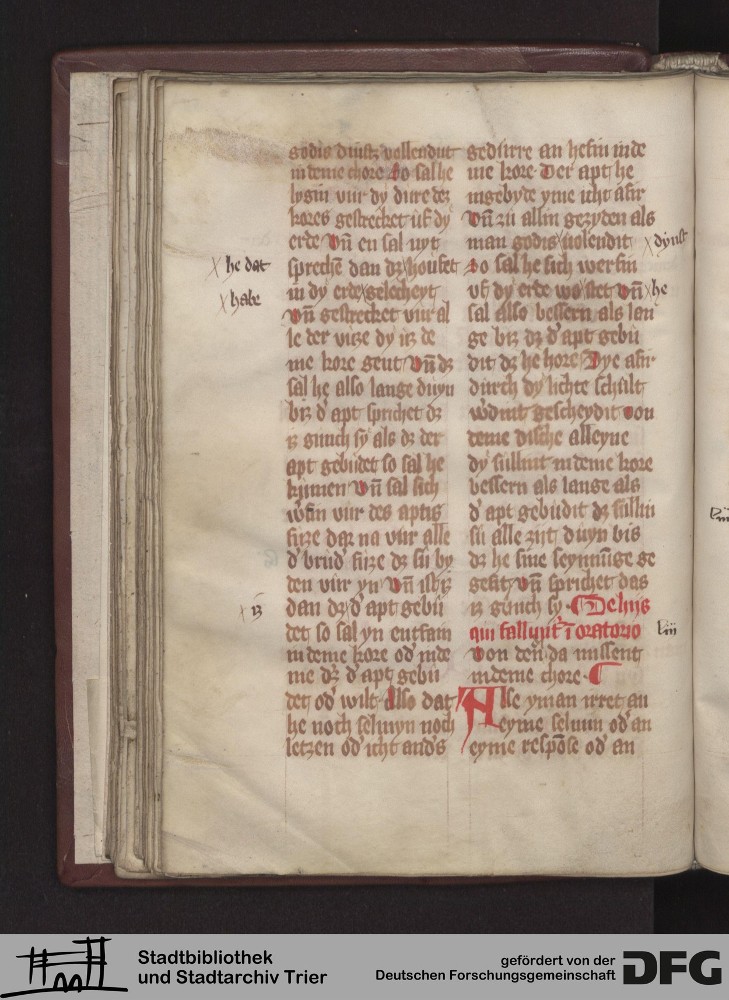 godis dinst vollendut
in deme chore So sal he
lygin vur dy dure der
kores gestrecket uf dy
erde Vn̄ en sal nyt
sprechē dan dz houfet
he dat
in dy erde gelecheyt
habe
Vn̄ gestrecket vur al
le der vuze dy uz de
me kore gent Vn̄ dz
sal he also lange duyn
biz d' apt sprichet dz
iz gnuch sy als dz der
apt gebudet so sal he
kumen Vn̄ sal sich
werfin vur des aptis
fuze dar na vur alle
d' brud' fuze dz su by
den vur yn Vn̄ ist iz
iz
dan dz d' apt gebu
det so sal yn entfain
in deme kore od' in de
me dz d' apt gebu
det od' wilt Also dat
he noch selmyn noch
letzen od' icht and's
gedurre an hefin in de
me kore Der apt he
ingebyde yme icht afir
Vn̄ zu allin gezyden als
man godis uolendit
dynst
so sal he sich werfin
vf dy erde wo stet Vn̄
he
sal also bessern als lan
ge biz dz d' apt gebu
dit dz he hore Dye afir
durch dy lichte schult
werdint gescheydit von
deme dische alleyne
dy sullint in deme kore
bessern als lange als
d' apt gebudit dz sullin
su alle zyt duyn bis
dz he sine seynunge ge
gesit Vn̄ sprichet das
iz gnuch sy De hijs
qui fallunt̄ ī oratorio
liii
Von den da missent
in deme chore
Alse yman irret an
eyme selmin od' an
eyme respōse od' an
Stadtbibliothek
und Stadtarchiv Trier
gefördert von der
Deutschen Forschungsgemeinschaft
DFG